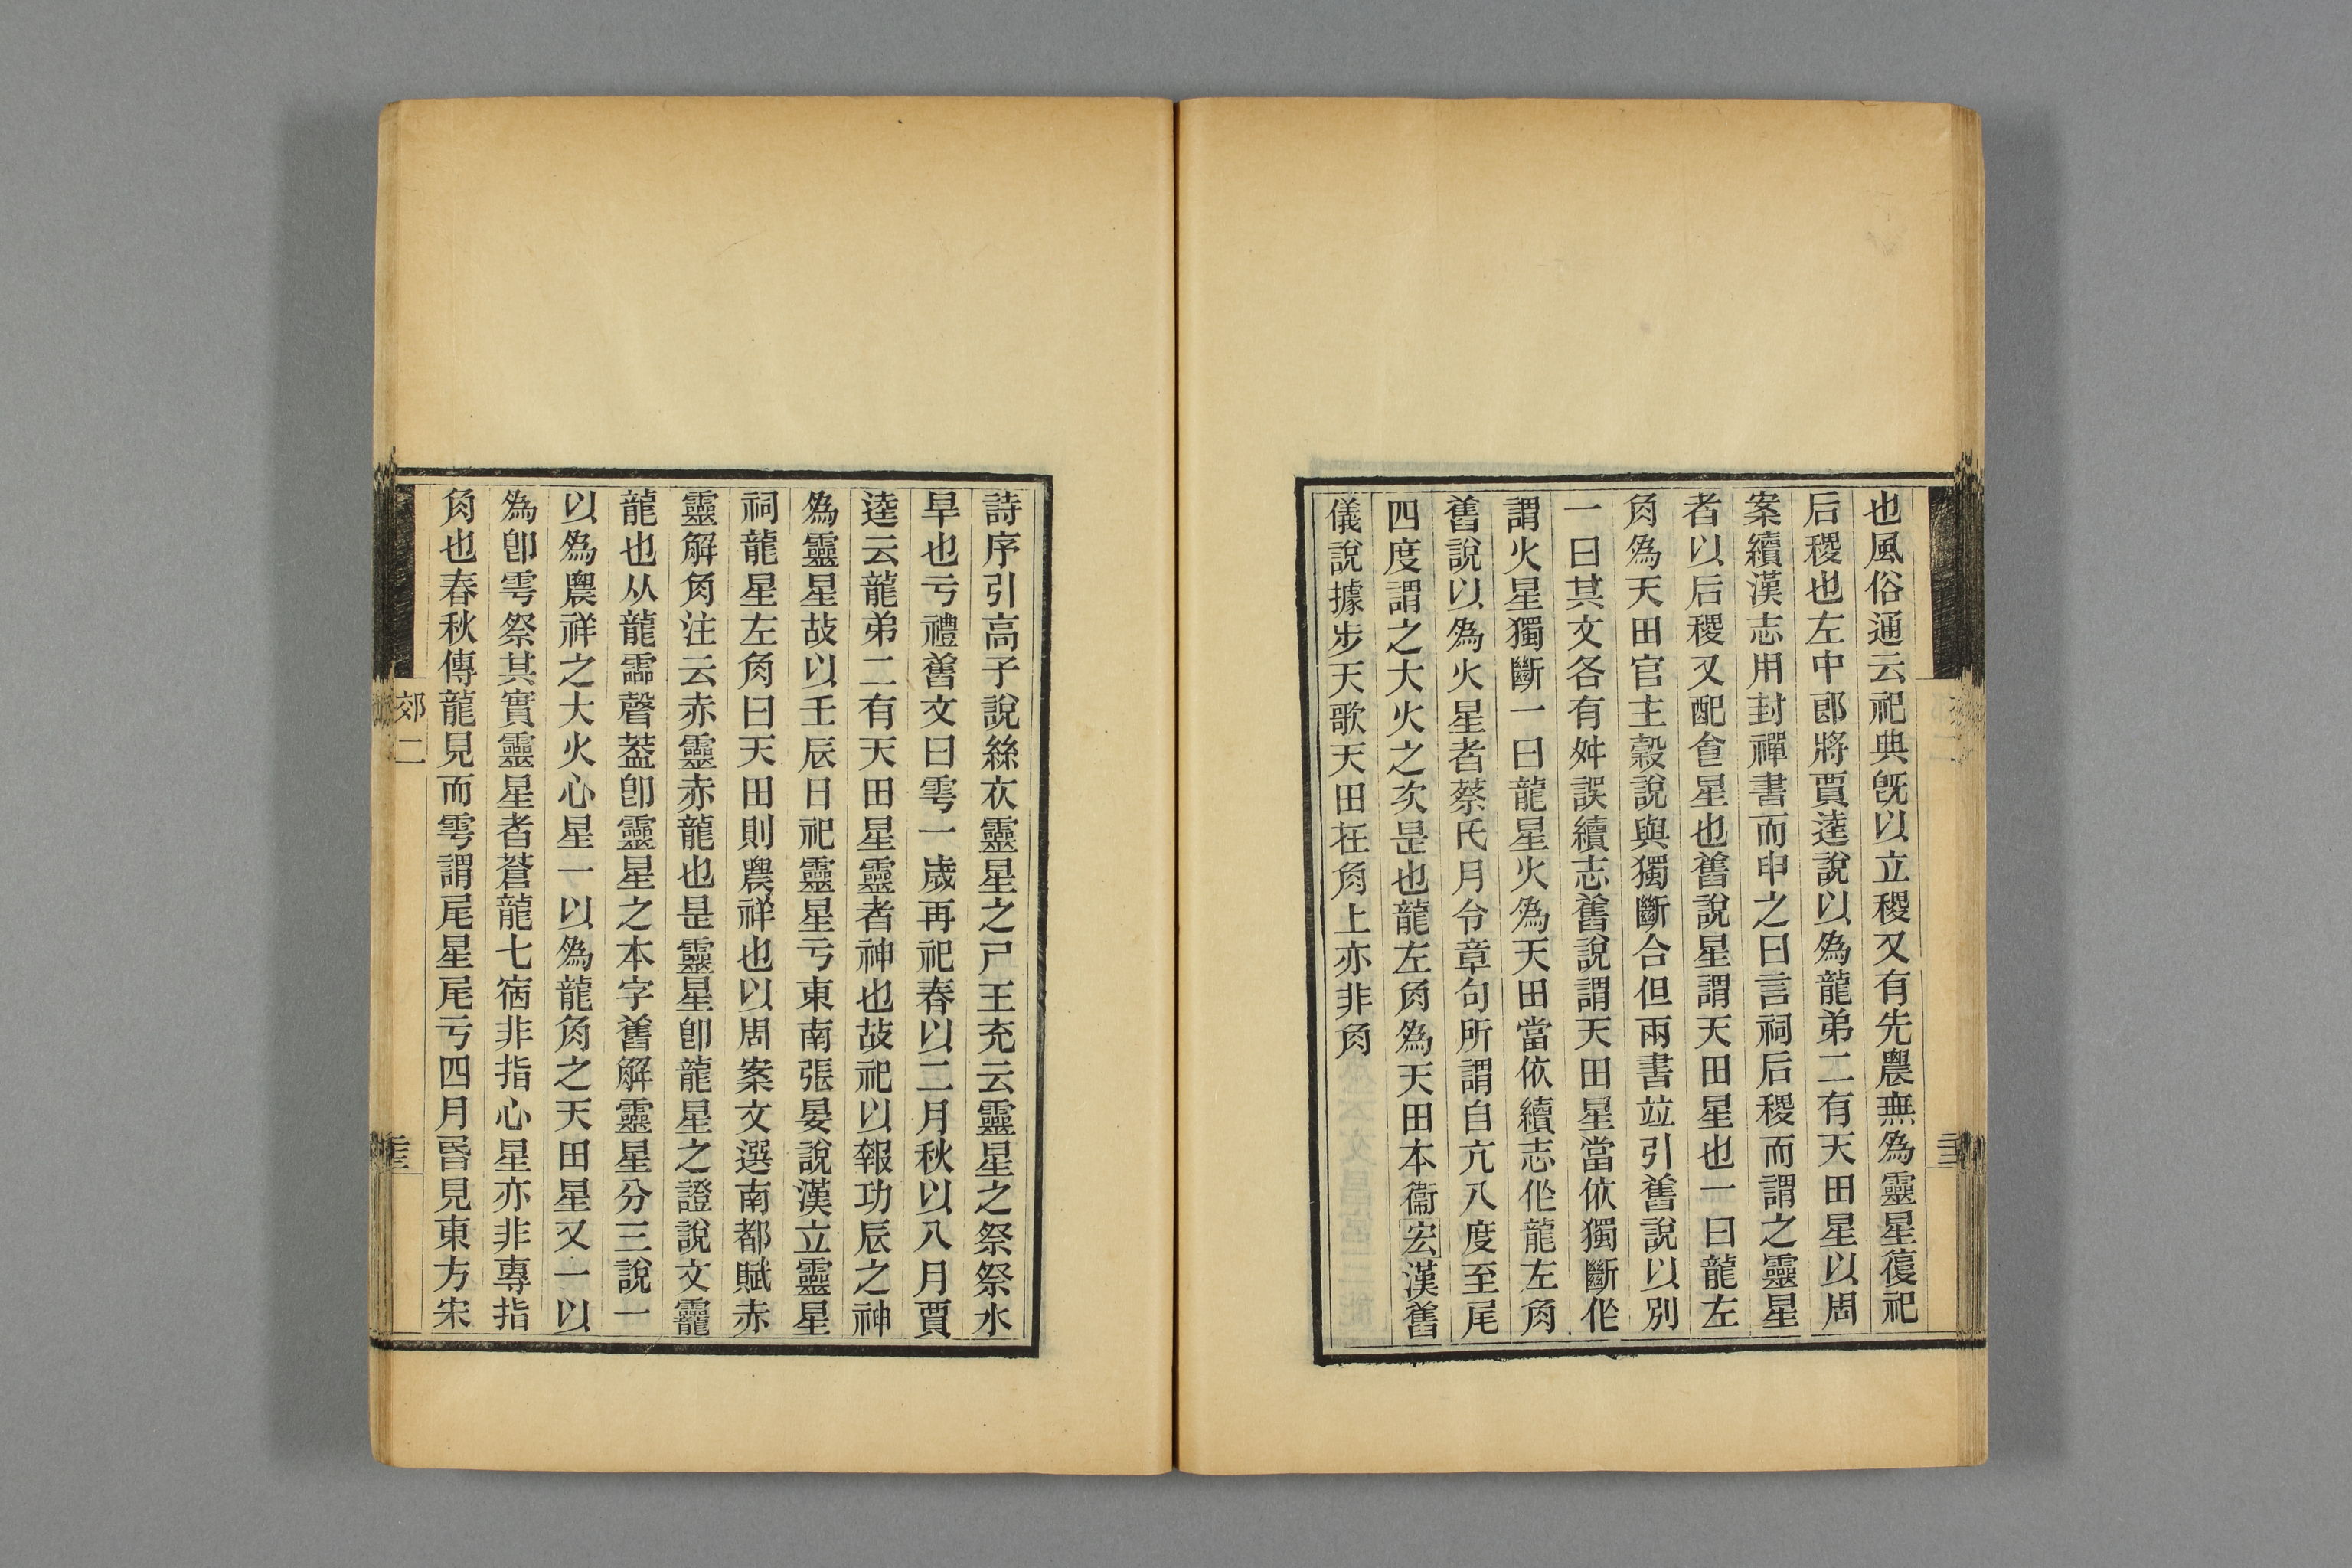 也風俗通云祀典旣以立稷又有先農無爲靈星復祀
后稷也左中郞將賈逵說以爲龍弟二有天田星以周
案續漢志用封禪書而申之曰言祠后稷而謂之靈星
者以后稷又配𠊊星也舊說星謂天田星也一曰龍左
角爲天田官主穀說與獨斷合但兩書竝引舊說以別
一曰其文各有舛誤續志舊說謂天田星當依獨斷作
謂火星獨斷一曰龍星火爲天田當依續志作龍左角
舊說以爲火星者蔡氏月令章句所謂自亢八度至尾
四度謂之大火之次是也龍左角爲天田本衞宏漢舊
儀說據步天歌天田在角上亦非角
詩序引高子說絲衣靈星之尸王充云靈星之祭祭水
旱也亏禮舊文曰雩一歲再祀春以二月秋以八月賈
逵云龍弟二有天田星靈者神也故祀以報功辰之神
爲靈星故以壬辰日祀靈星亏東南張晏說漢立靈星
祠龍星左角曰天田則農祥也以周案文選南都賦赤
靈解角注云赤靈赤龍也是靈星卽龍星之證說文龗
龍也从龍霝聲葢卽靈星之本字舊解靈星分三說一
以爲農祥之大火心星一以爲龍角之天田星又一以
爲卽雩祭其實靈星者蒼龍七宿非指心星亦非專指
角也春秋傳龍見而雩謂尾星尾亏四月昏見東方宋
郊二